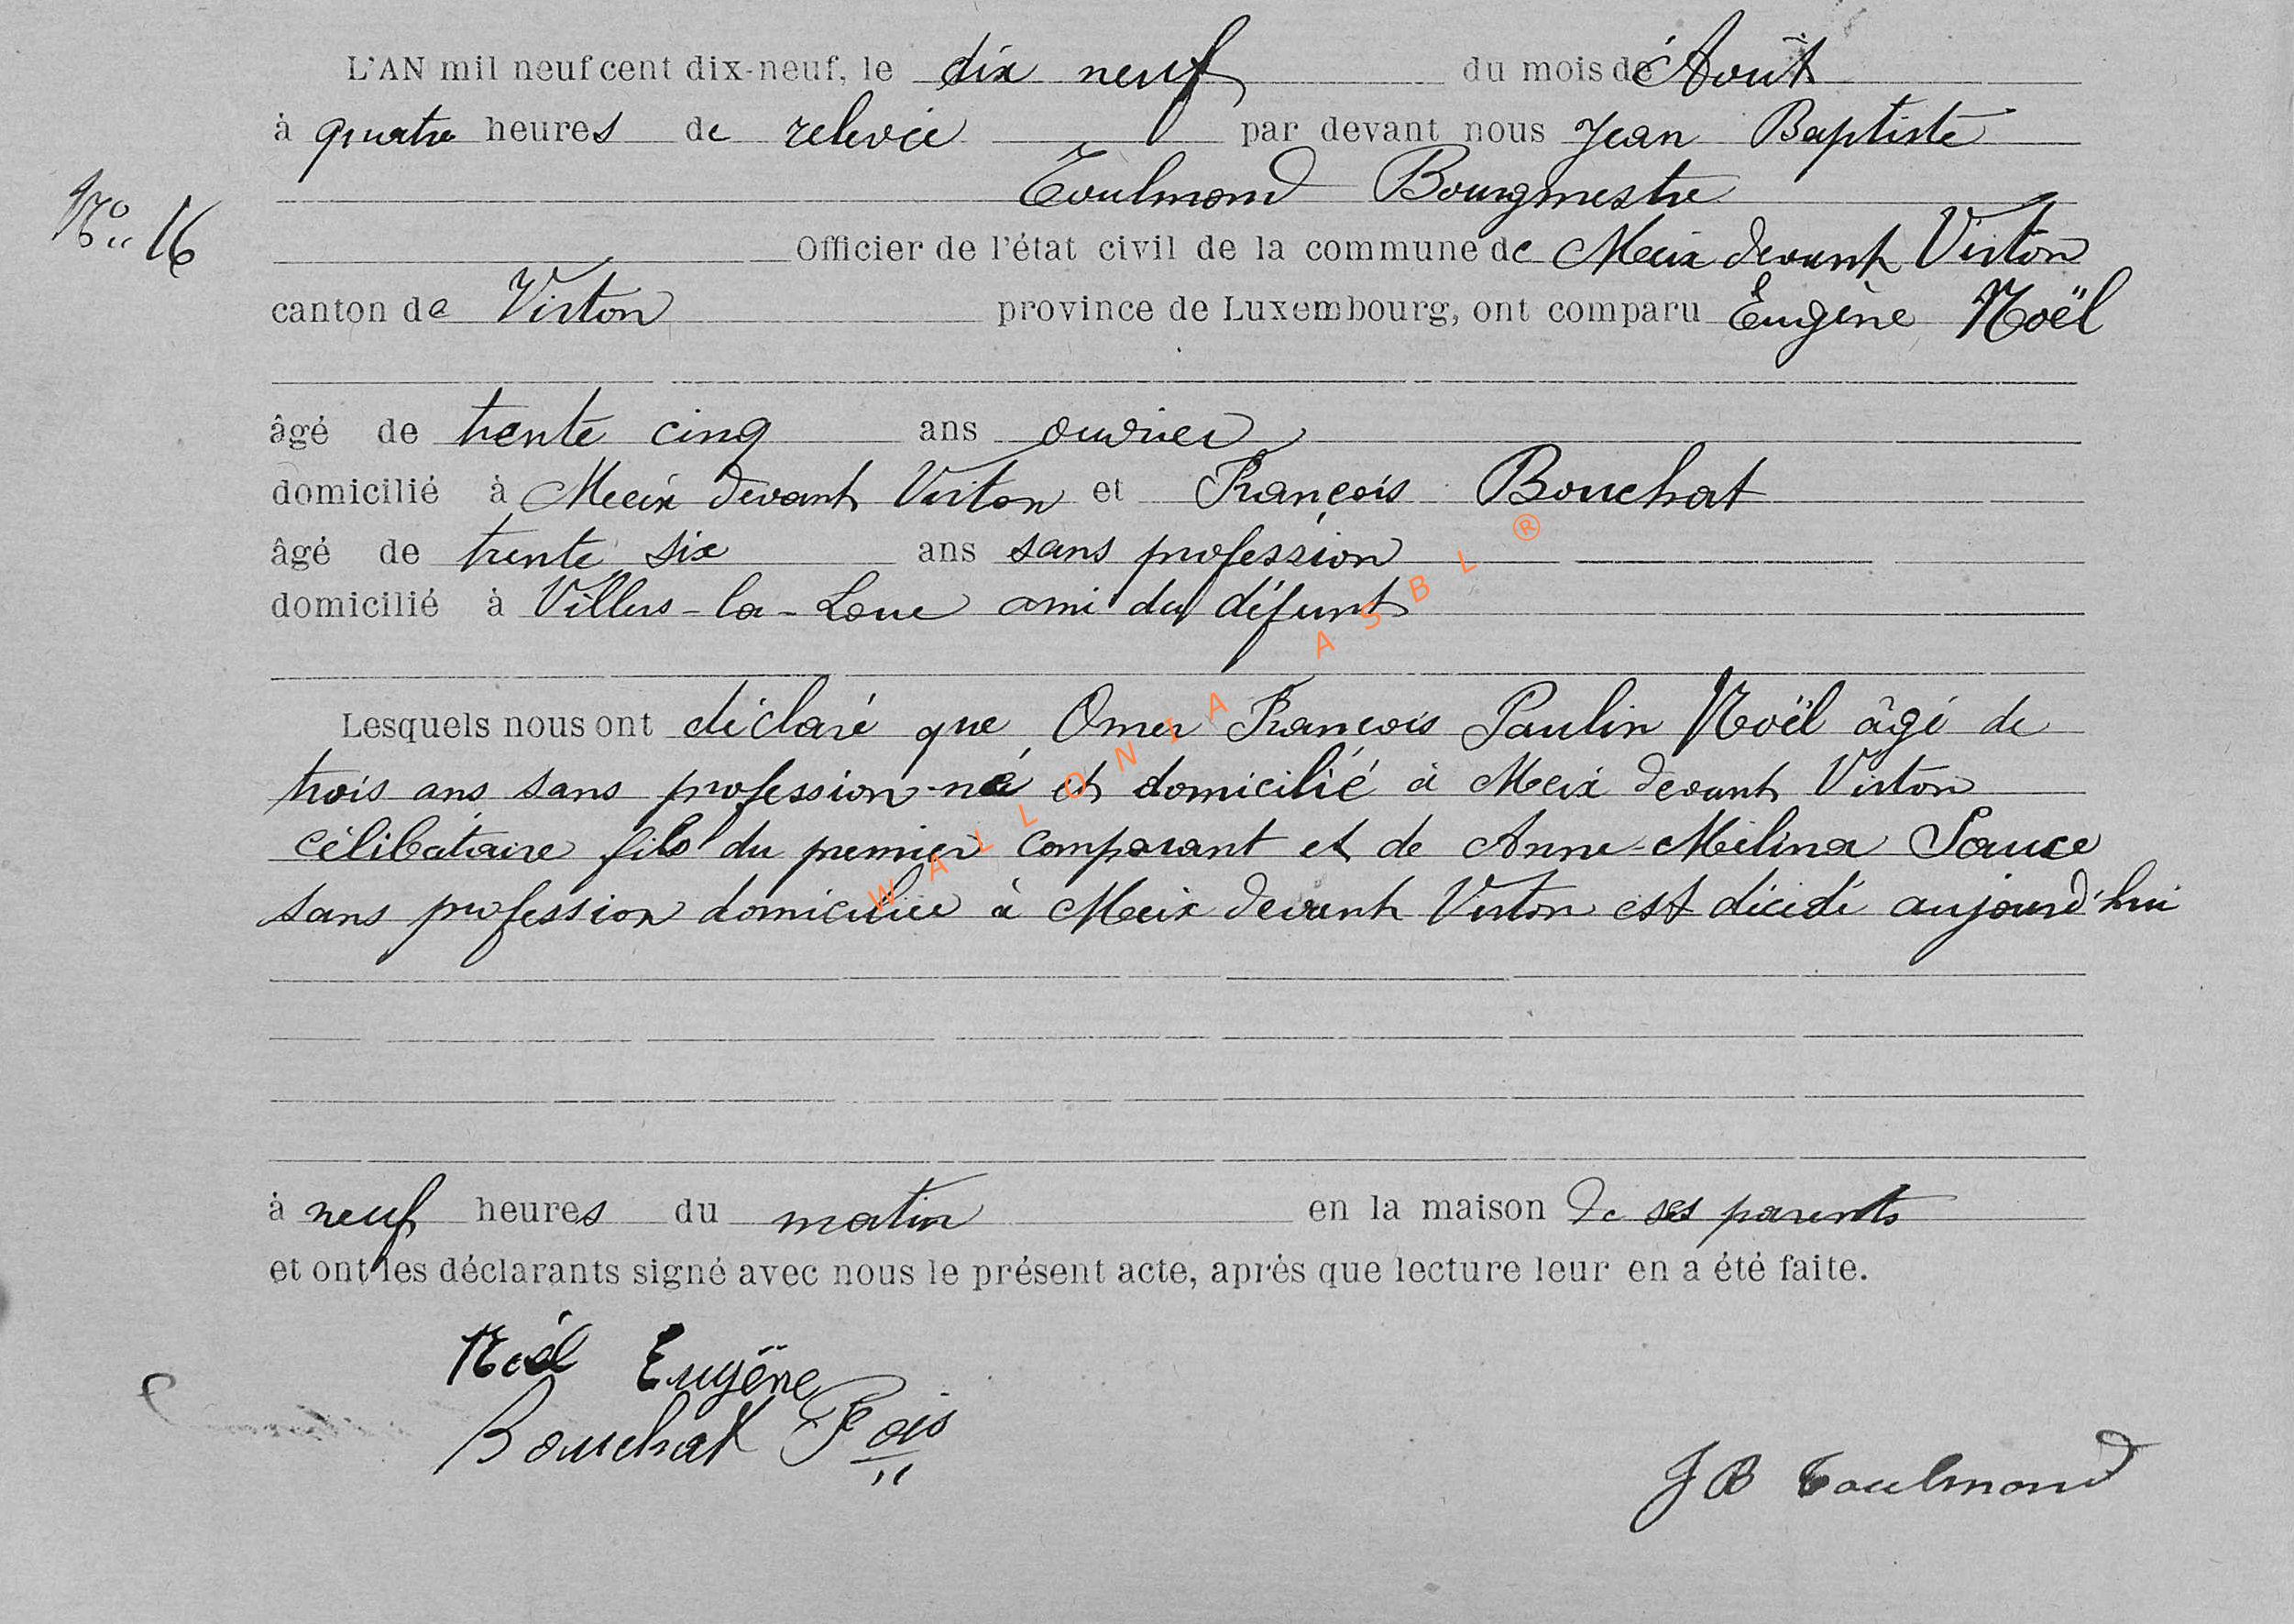 L'AN mil neuf cent dix-neuf, le dix neuf du mois d'Août
à quatre heures de relevée par devant nous Jean Baptiste
Toulmond Bourgmestre
N° 16
Officier de l'état civil de la commune de Meix devant Virton
canton de Virton province de Luxembourg, ont comparu Eugène Noël
âgé de trente cinq ans ouvrier
domicilié à Meix devant Virton et François Bouchat
âgé de trente six ans sans profession
domicilié à Villers-la-Loue ami du défunt
Lesquels nous ont déclaré que Omer François Paulin Noël âgé de
trois ans sans profession né et domicilié à Meix devant Virton
célibataire fils du premier comparant et de Anne-Mélina Sauce
sans profession domiciliée à Meix devant Virton est décédé aujourd'hui
à neuf heures du matin en la maison de ses parents
et ont les déclarants signé avec nous le présent acte, après que lecture leur en a été faite.
Noël Eugène
Bouchat Fçois
JB Toulmond
WALLONIA ASBL ®